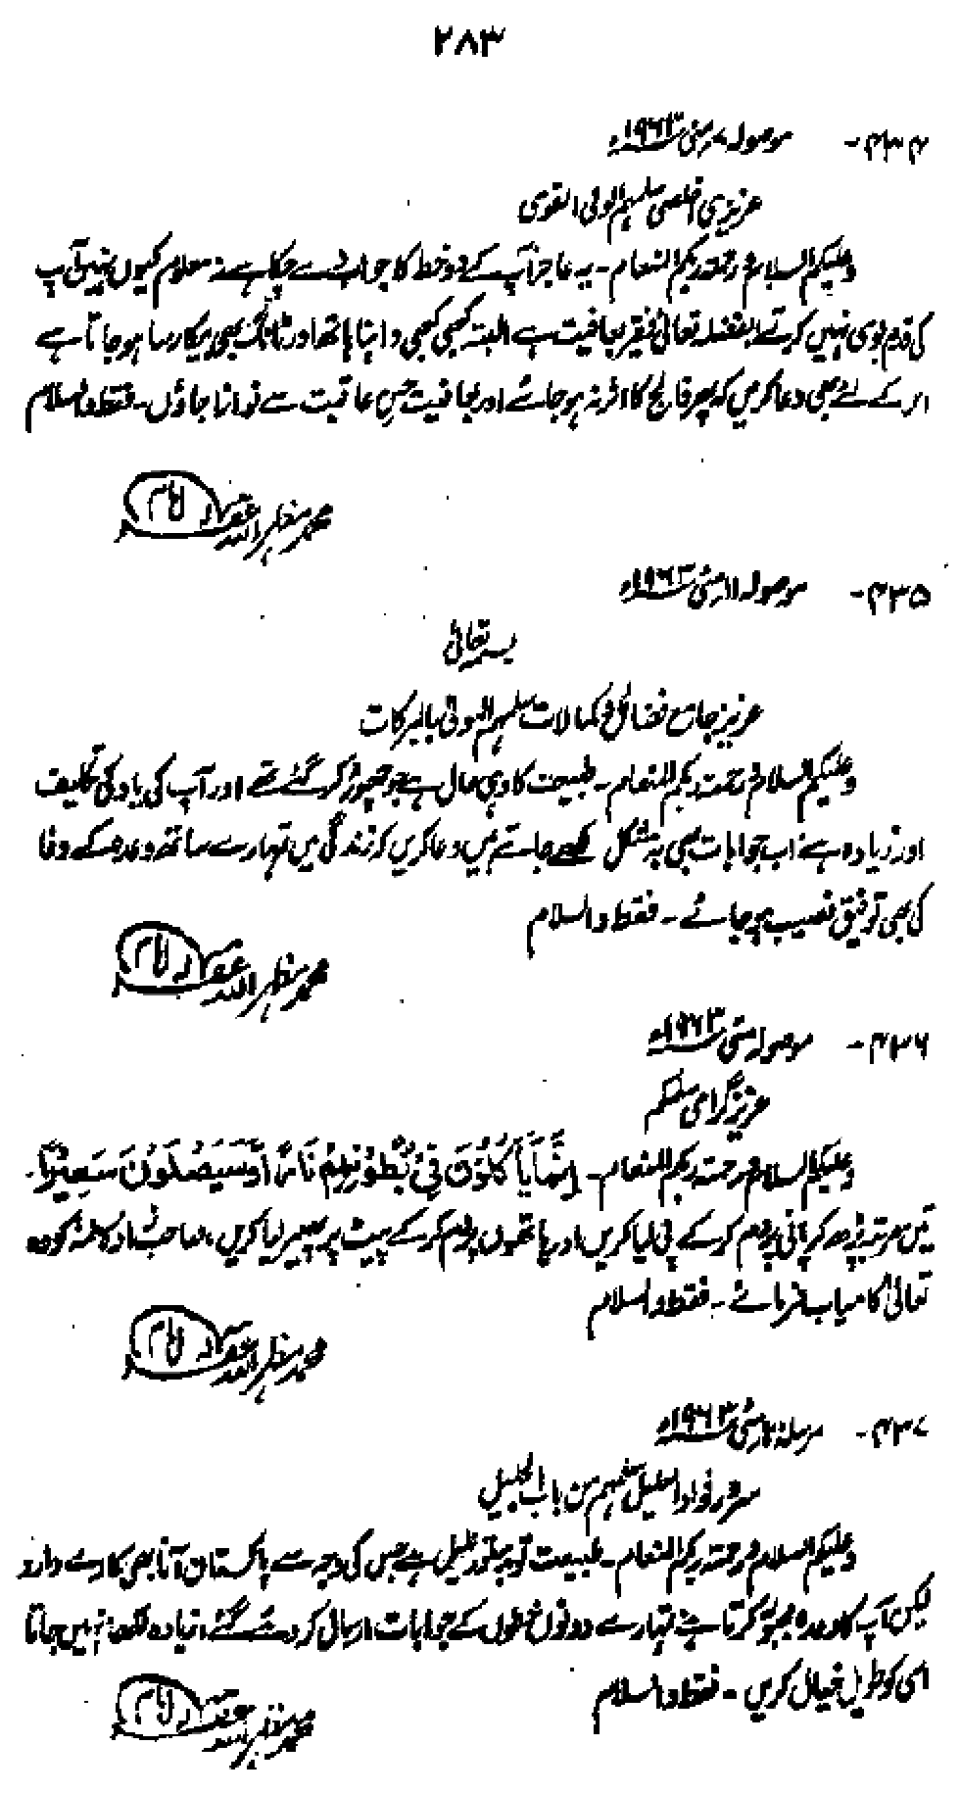 ۲۸۳
۴۳۴- موصولہ ۷ مئی ۱۹۶۳ء
عزیزی اخلصی سلمہم الولی القوی
وعلیکم السلام ثم رحمۃ ربکم المنعام۔ یہ عاجز آپ کے دو خط کا جواب دے چکا ہے نہ معلوم کیوں نہیں آپ
کی قدم بوسی نہیں کرتے بفضلہ تعالیٰ فقیر بعافیت ہے البتہ کبھی کبھی داہنا ہاتھ اور ٹانگ بھی بیکار سا ہو جاتا ہے
اس کے لئے بھی دعا کریں کہ پھر فالج کا اثر نہ ہو جائے اور بعافیت حسن عاقبت سے نوازا جاؤں۔ فقط والسلام
محمد مظہر اللہ غفرلہ امام
۴۳۵- موصولہ ۱۱ مئی ۱۹۶۳ء
بسمہ تعالیٰ
عزیز جامع فضائل و کمالات سلمہم المولیٰ بالبرکات
وعلیکم السلام ثم رحمۃ ربکم المنعام۔ طبیعت کا وہی حال ہے جو چھوڑ کر گئے تھے اور آپ کی یاد کی تکلیف
اور زیادہ ہے اب جوابات بھی بہ مشکل لکھے جاتے ہیں دعا کریں کہ زندگی میں تمہارے ساتھ وعدہ کے وفا
کی بھی توفیق نصیب ہو جائے۔ فقط والسلام
محمد مظہر اللہ غفرلہ امام
۴۳۶- موصولہ مئی ۱۹۶۳ء
عزیز گرامی سلمکم
وعلیکم السلام ثم رحمۃ ربکم المنعام۔ اِنَّمَا يَأْكُلُوْنَ فِيْ بُطُوْنِهِمْ نَارًا وَّسَيَصْلَوْنَ سَعِيْرًا۔
تین مرتبہ پڑھ کر پانی پر دم کر کے پی لیا کریں اور ہاتھوں پر دم کر کے پیٹ پر پھیر لیا کریں، صاحبزادگان کو مولیٰ
تعالیٰ کامیاب فرمائے۔ فقط والسلام
محمد مظہر اللہ غفرلہ امام
۴۳۷- مرسلہ ۲۰ مئی ۱۹۶۳ء
سرور فؤاد العلیل سلمہم من باب الجلیل
وعلیکم السلام ثم رحمۃ ربکم المنعام۔ طبیعت تو بدستور علیل ہے جس کی وجہ سے پاکستان آنا بھی کارے دارد
لیکن آپ کا وعدہ مجبور کرتا ہے تمہارے دونوں خطوں کے جوابات ارسال کر دئے گئے، زیادہ لکھا نہیں جاتا
اسی کو طویل خیال کریں۔ فقط والسلام
محمد مظہر اللہ غفرلہ امام